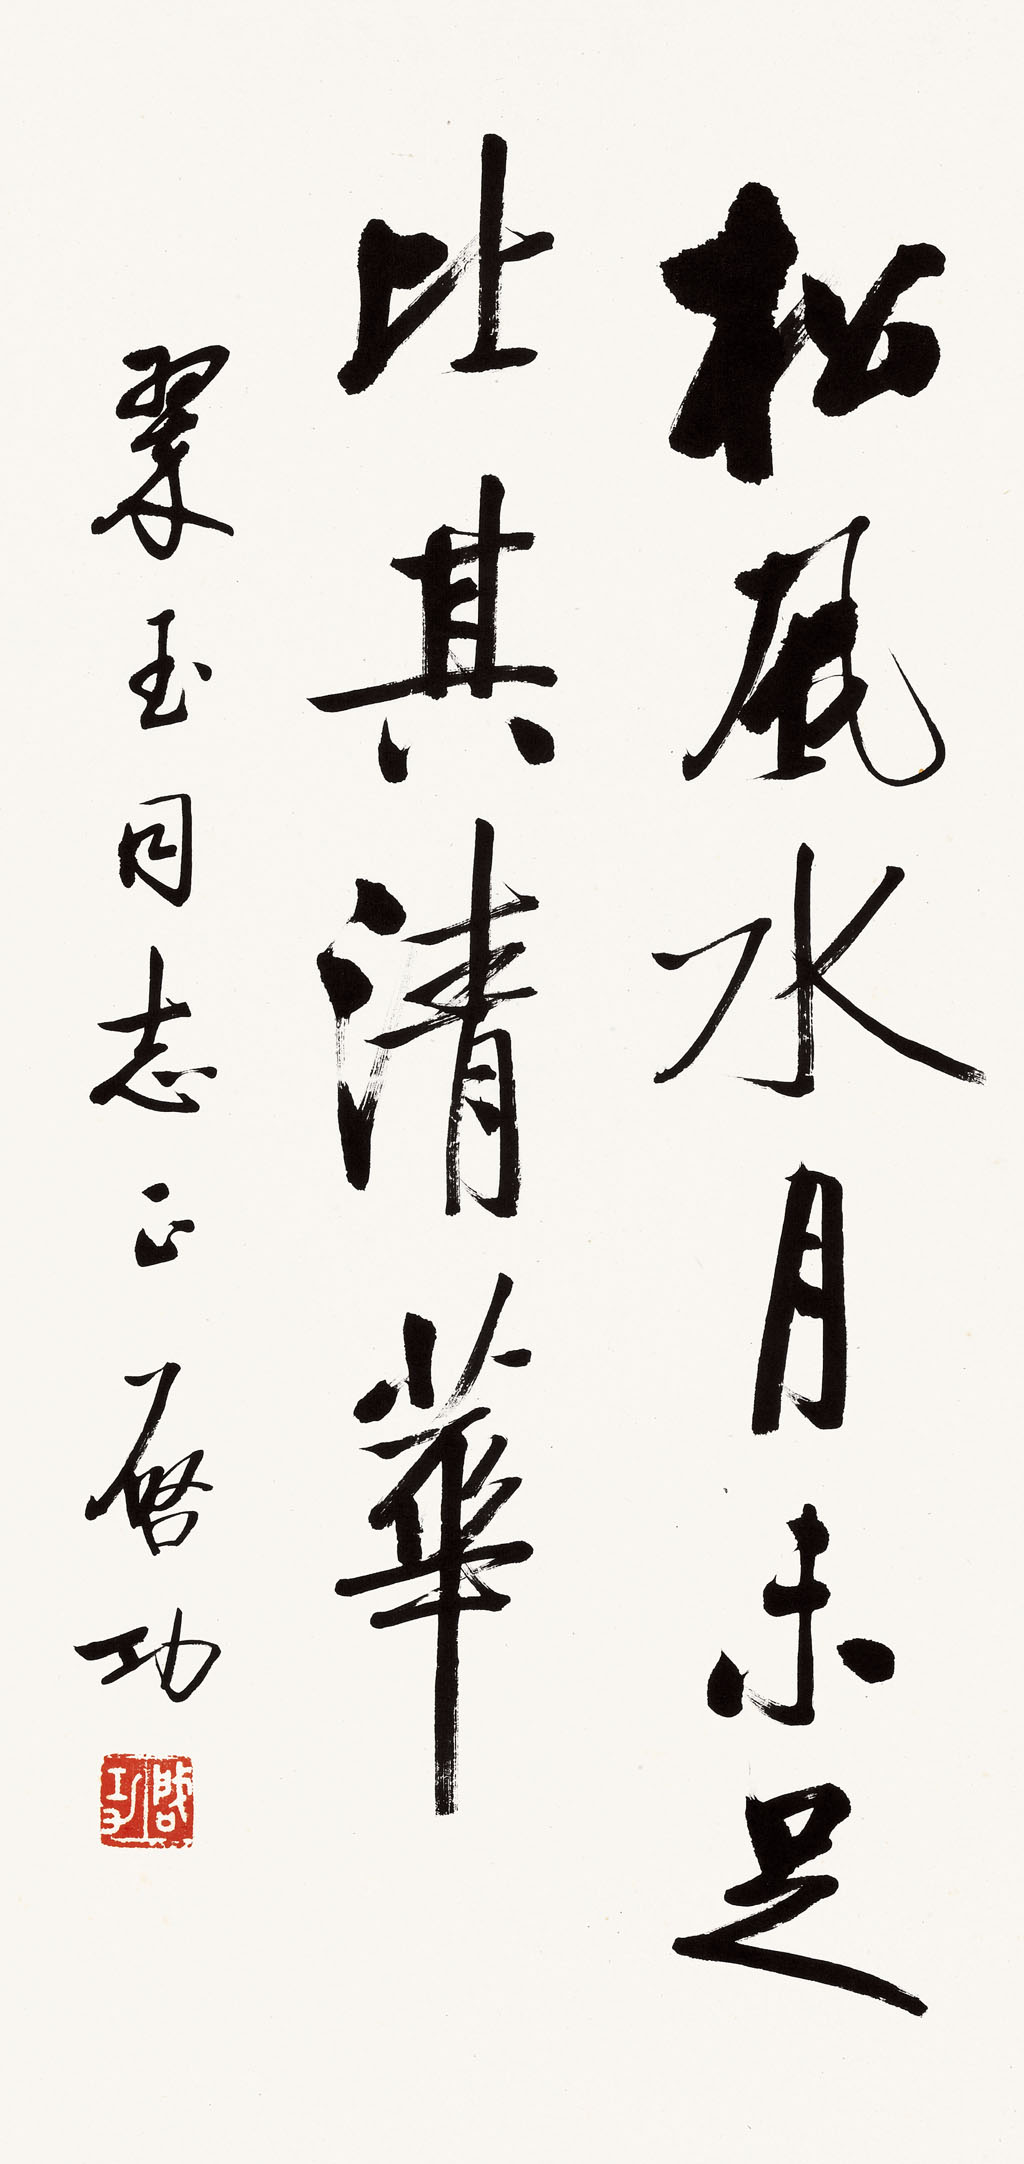 松風水月未足
比其清華
翠玉同志正 啓功
啟功